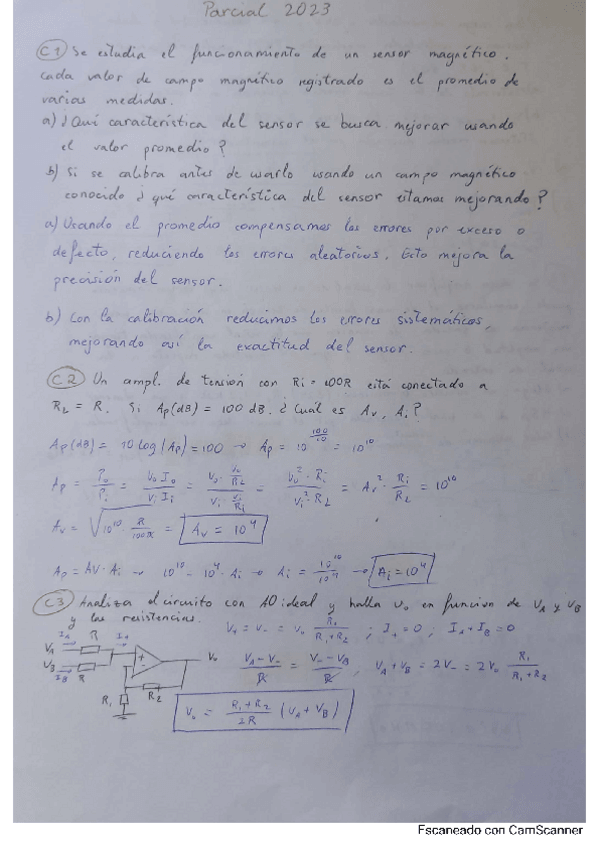 Parcial 2023
C1) Se estudia el funcionamiento de un sensor magnético.
Cada valor de campo magnético registrado es el promedio de
varias medidas.
a) ¿Qué característica del sensor se busca mejorar usando
el valor promedio?
b) Si se calibra antes de usarlo usando un campo magnético
conocido ¿qué característica del sensor estamos mejorando?
a) Usando el promedio compensamos los errores por exceso o
defecto, reduciendo los errores aleatorios. Esto mejora la
precisión del sensor.
b) Con la calibración reducimos los errores sistemáticos,
mejorando así la exactitud del sensor.
C.2) Un ampl. de tensión con Ri = 100R está conectado a
RL = R. Si Ap(dB) = 100 dB. ¿Cuál es Av, Ai?
Ap(dB) = 10 log |Ap| = 100 → Ap = 10^(100/10) = 10^10
Ap = Po/Pi = (Vo Io)/(Vi Ii) = (Vo · Vo/RL)/(Vi · Vi/Ri) = (Vo² · Ri)/(Vi² · RL) = Av² · Ri/RL = 10^10
Av = √(10^10 · R/100R) = Av = 10^4
Ap = Av · Ai → 10^10 = 10^4 · Ai → Ai = 10^10/10^4 → Ai = 10^4
C3) Analiza el circuito con AO ideal y halla Vo en función de VA y VB
y las resistencias.
V+ = V- = Vo R1/(R1+R2) ; I+ = 0 ; IA + IB = 0
IA R I+
VA
VB
IB R
Vo
R1
R2
(VA - V-)/R = (V- - VB)/R ; VA + VB = 2V- = 2Vo R1/(R1+R2)
Vo = (R1+R2)/2R (VA + VB)
Escaneado con CamScanner